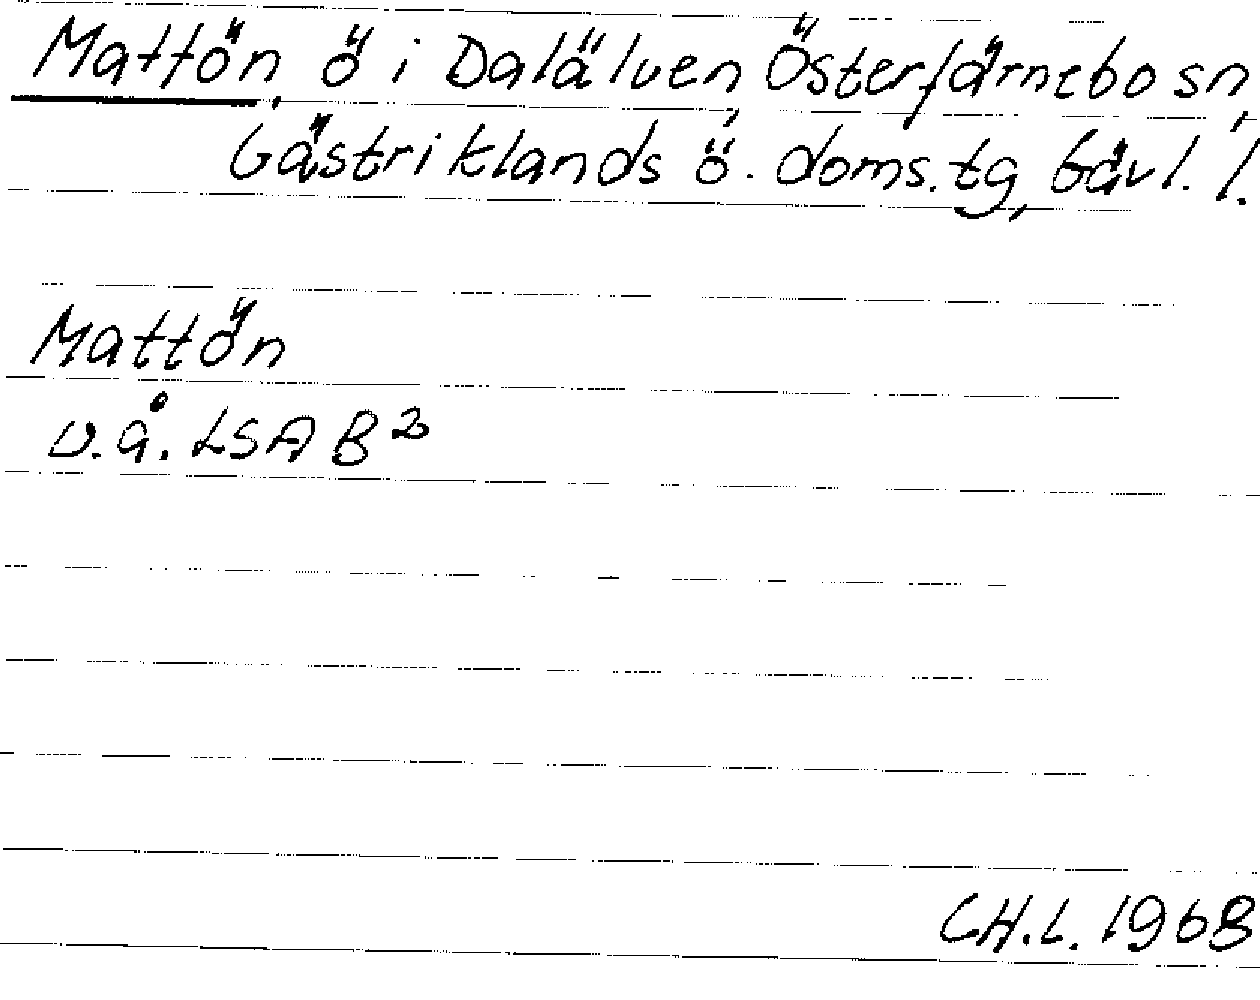 Mattön, ö i Dalälven, Österfärnebo sn,
Gästriklands ö. doms.tg, Gävl. l.
Mattön
u.å. LSA B2
CH.L. 1968